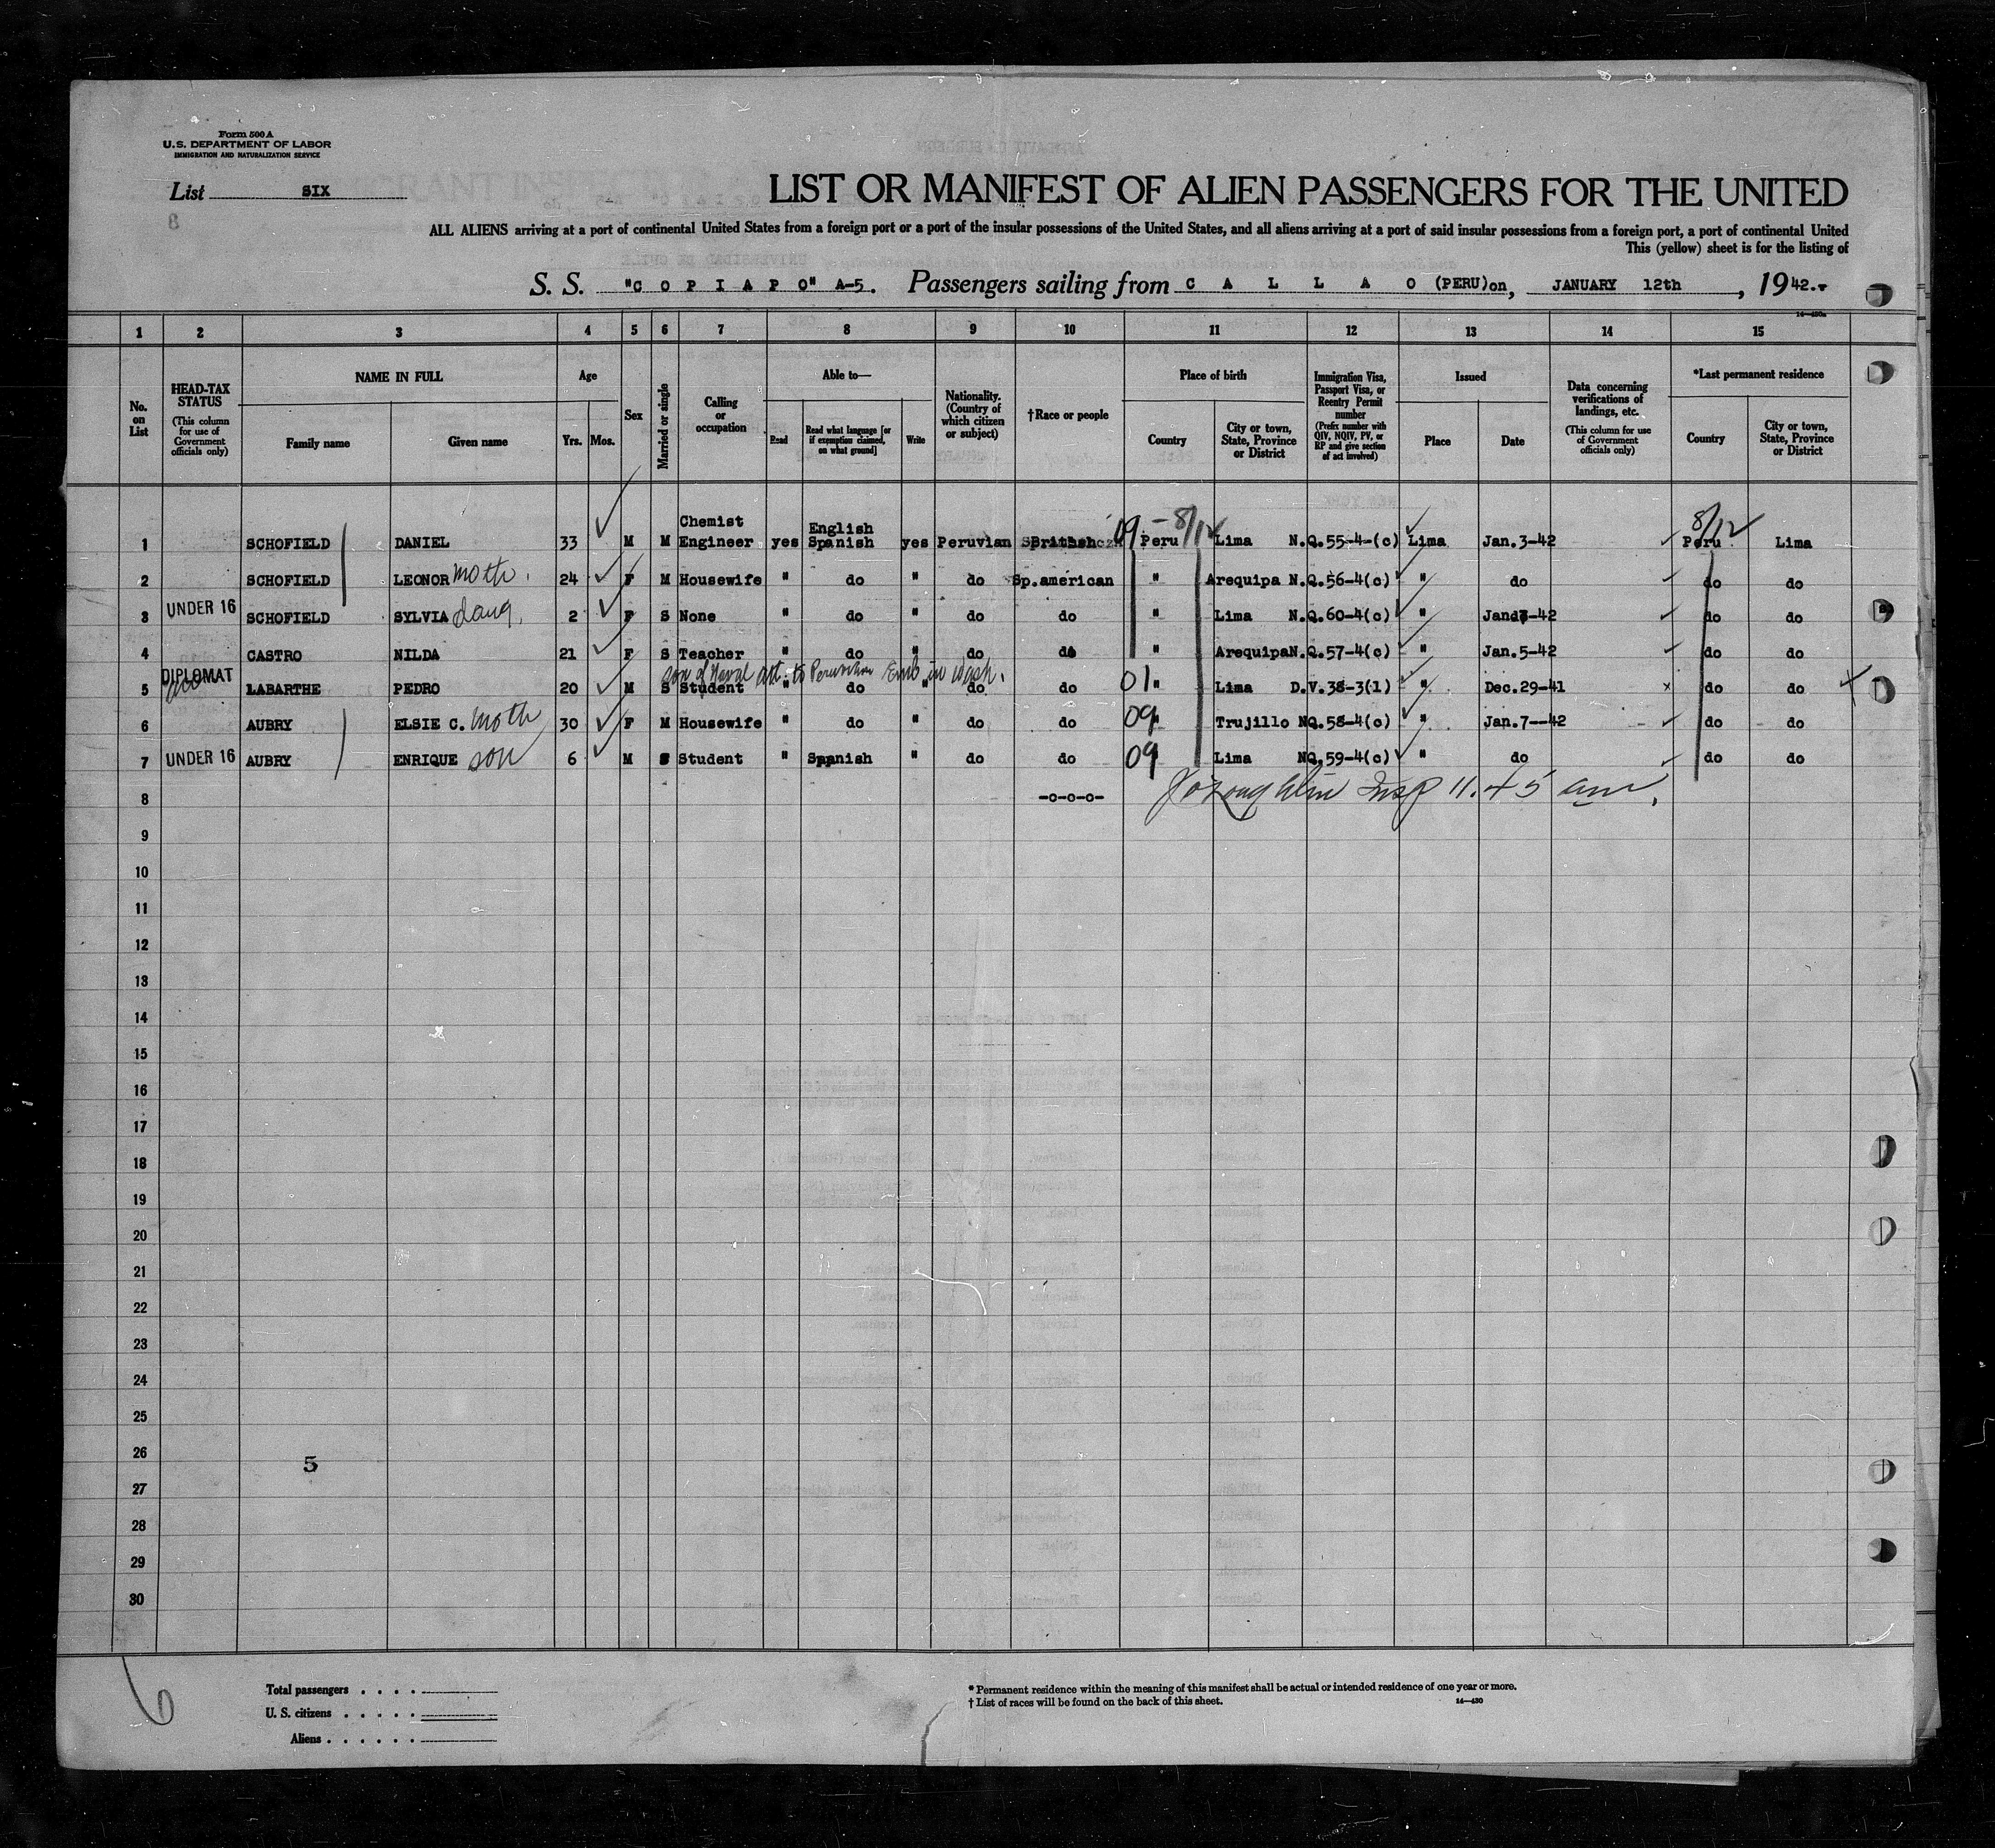 Form 500 A
U.S. DEPARTMENT OF LABOR
IMMIGRATION AND NATURALIZATION SERVICE
List SIX
LIST OR MANIFEST OF ALIEN PASSENGERS FOR THE UNITED
ALL ALIENS arriving at a port of continental United States from a foreign port or a port of the insular possessions of the United States, and all aliens arriving at a port of said insular possessions from a foreign port, a port of continental United
This (yellow) sheet is for the listing of
S. S. "C O P I A P O" A-5. Passengers sailing from C A L L A O (PERU) on, JANUARY 12th, 1942.
1 2 3 4 5 6 7 8 9 10 11 12 13 14 15
No. on List
HEAD-TAX STATUS (This column for use of Government officials only)
NAME IN FULL
Family name Given name
Age
Yrs. Mos.
Sex
Married or single
Calling or occupation
Able to—
Read Read what language [or if exemption claimed, on what ground] Write
Nationality. (Country of which citizen or subject)
†Race or people
Place of birth
Country City or town, State, Province or District
Immigration Visa, Passport Visa, or Reentry Permit number (Prefix number with QIV, NQIV, PV, or RP and give section of act involved)
Issued
Place Date
Data concerning verifications of landings, etc. (This column for use of Government officials only)
*Last permanent residence
Country City or town, State, Province or District
19 - 8/12 8/12
1 SCHOFIELD DANIEL 33 M M Chemist Engineer yes English Spanish yes Peruvian British Peru Lima N.Q.55-4-(c) Lima Jan.3-42 Peru Lima
2 SCHOFIELD LEONOR moth. 24 F M Housewife " do " do Sp.american " Arequipa N.Q.56-4(c) " do do do
3 UNDER 16 SCHOFIELD SYLVIA daug. 2 F S None " do " do do " Lima N.Q.60-4(c) " -42 do do
4 CASTRO NILDA 21 F S Teacher " do " do do " Arequipa N.Q.57-4(c) " Jan.5-42 do do
son of Naval att. to Peruvian Emb in Wash.
5 DIPLOMAT LABARTHE PEDRO 20 M S Student " do " do do 01 " Lima D.V.38-3(1) " Dec.29-41 do do
6 AUBRY ELSIE C. moth 30 F M Housewife " do " do do 09 " Trujillo NQ.58-4(c) " Jan.7--42 do do
7 UNDER 16 AUBRY ENRIQUE son 6 M S Student " Spanish " do do 09 " Lima NQ.59-4(c) " do do do
8 -o-o-o- Insp 11.45 am.
9
10
11
12
13
14
15
16
17
18
19
20
21
22
23
24
25
26
5
27
28
29
30
6
Total passengers . . . .
U. S. citizens . . . . .
Aliens . . . . . .
* Permanent residence within the meaning of this manifest shall be actual or intended residence of one year or more.
† List of races will be found on the back of this sheet.
14—430